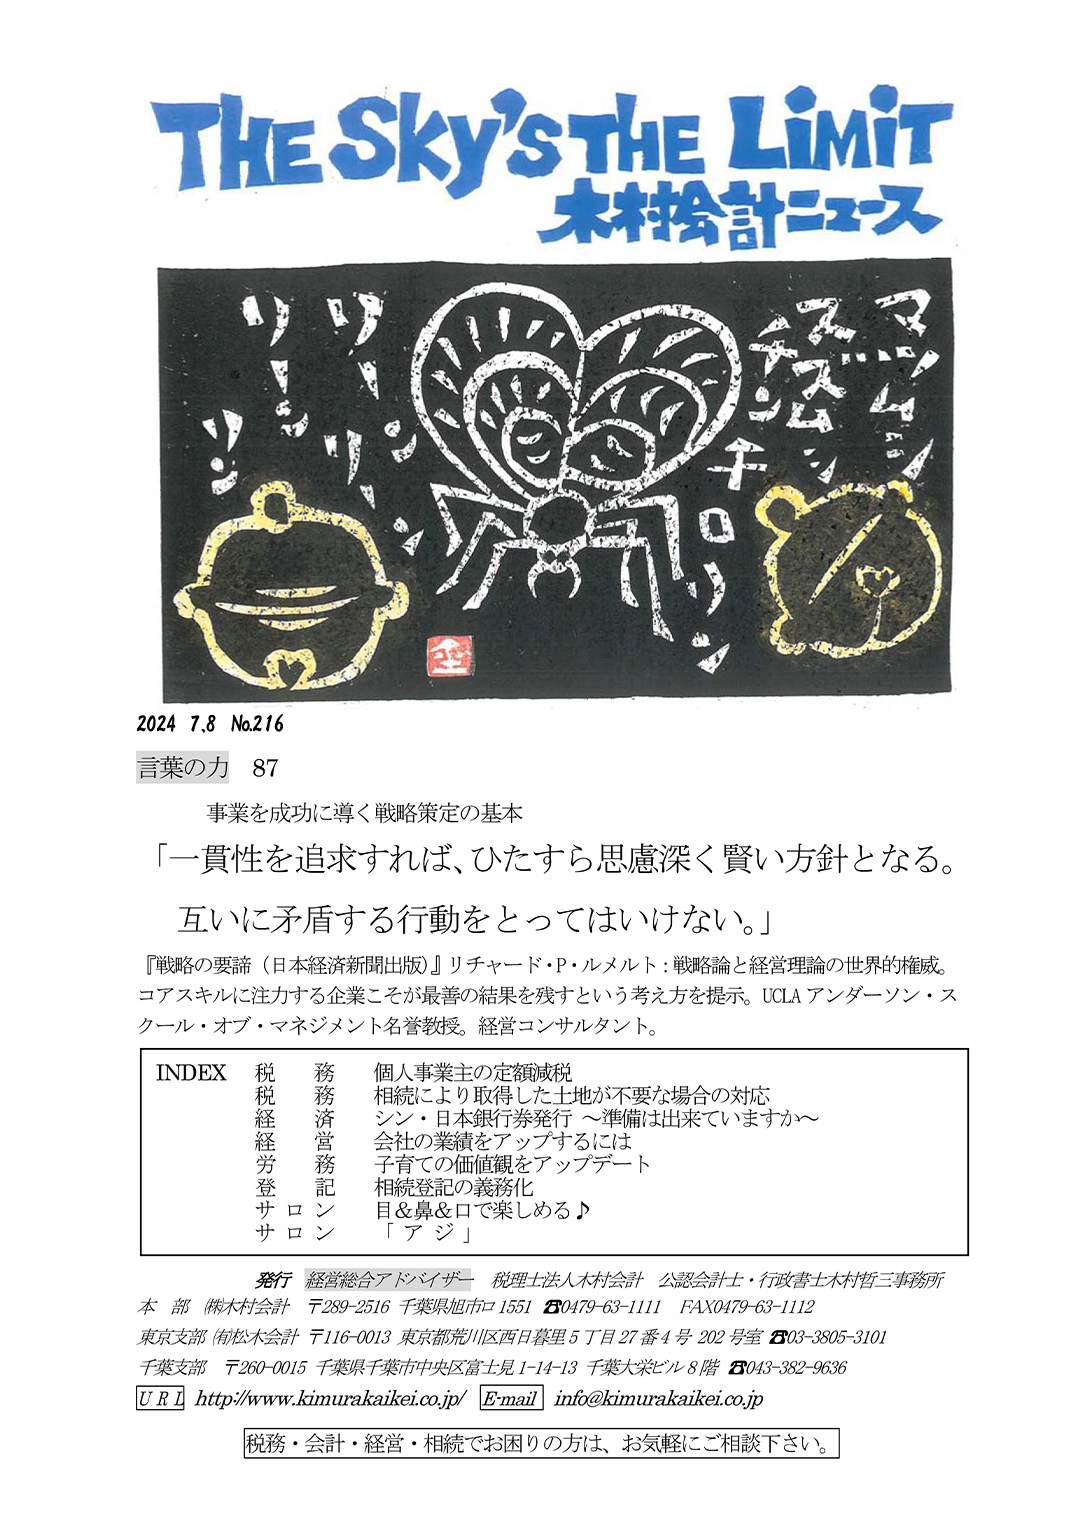 THE Sky's THE LiMiT
木村会計ニュース
マツムシ
スズムシ
チンチ
チロリン
リーンリーン
リーン
リン
2024 7.8 No.216
言葉の力 87
事業を成功に導く戦略策定の基本
「一貫性を追求すれば、ひたすら思慮深く賢い方針となる。
互いに矛盾する行動をとってはいけない。」
『戦略の要諦（日本経済新聞出版）』リチャード・P・ルメルト：戦略論と経営理論の世界的権威。
コアスキルに注力する企業こそが最善の結果を残すという考え方を提示。UCLA アンダーソン・ス
クール・オブ・マネジメント名誉教授。経営コンサルタント。
INDEX 税 務 個人事業主の定額減税
税 務 相続により取得した土地が不要な場合の対応
経 済 シン・日本銀行券発行 ～準備は出来ていますか～
経 営 会社の業績をアップするには
労 務 子育ての価値観をアップデート
登 記 相続登記の義務化
サ ロ ン 目＆鼻＆口で楽しめる♪
サ ロ ン 「 ア ジ 」
発行 経営総合アドバイザー 税理士法人木村会計 公認会計士・行政書士木村哲三事務所
本 部 ㈱木村会計 〒289-2516 千葉県旭市ロ 1551 ☎0479-63-1111 FAX0479-63-1112
東京支部 ㈲松木会計 〒116-0013 東京都荒川区西日暮里 5 丁目 27 番 4 号 202 号室 ☎03-3805-3101
千葉支部 〒260-0015 千葉県千葉市中央区富士見 1-14-13 千葉大栄ビル 8 階 ☎043-382-9636
U R L http://www.kimurakaikei.co.jp/ E-mail info@kimurakaikei.co.jp
税務・会計・経営・相続でお困りの方は、お気軽にご相談下さい。